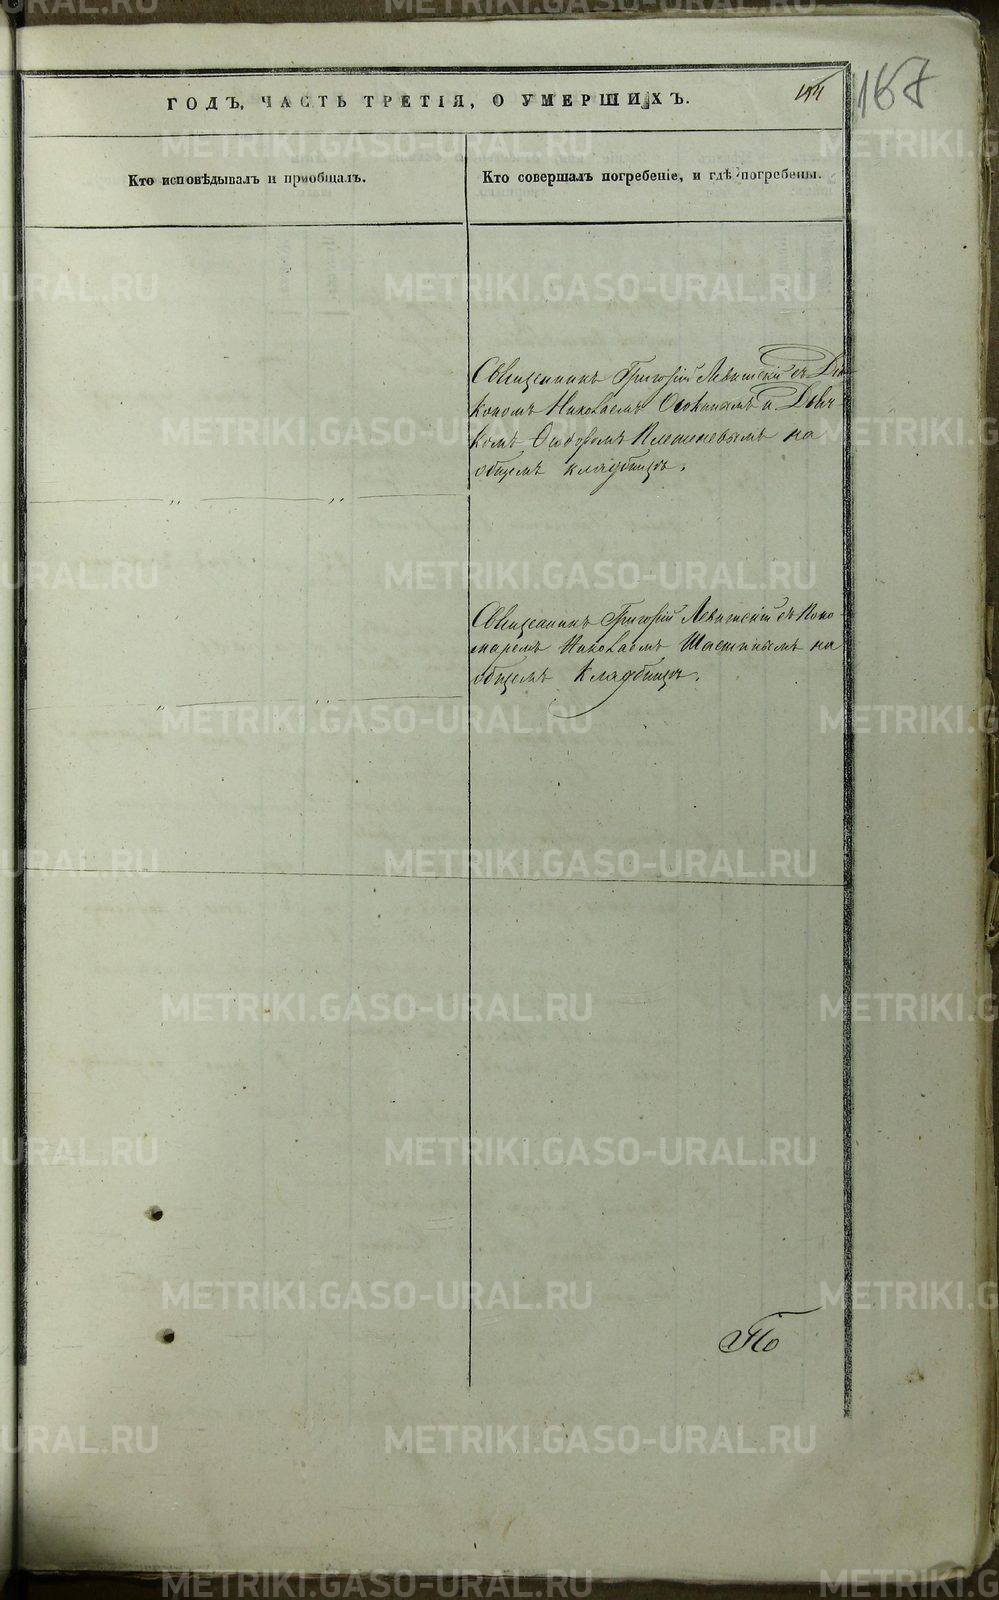 ГОДЪ, ЧАСТЬ ТРЕТІЯ, О УМЕРШИХЪ.
167
Кто исповѣдывалъ и пріобщалъ.
Кто совершалъ погребеніе, и гдѣ погребены.
Священникъ Григорій Левитскій съ Діа-
кономъ Николаемъ и Дьяч-
комъ Ѳедоромъ Плетеневымъ на
общемъ кладбищѣ.
Священникъ Григорій Левитскій съ Поно-
маремъ Николаемъ на
общемъ кладбищѣ.
По
METRIKI.GASO-URAL.RU